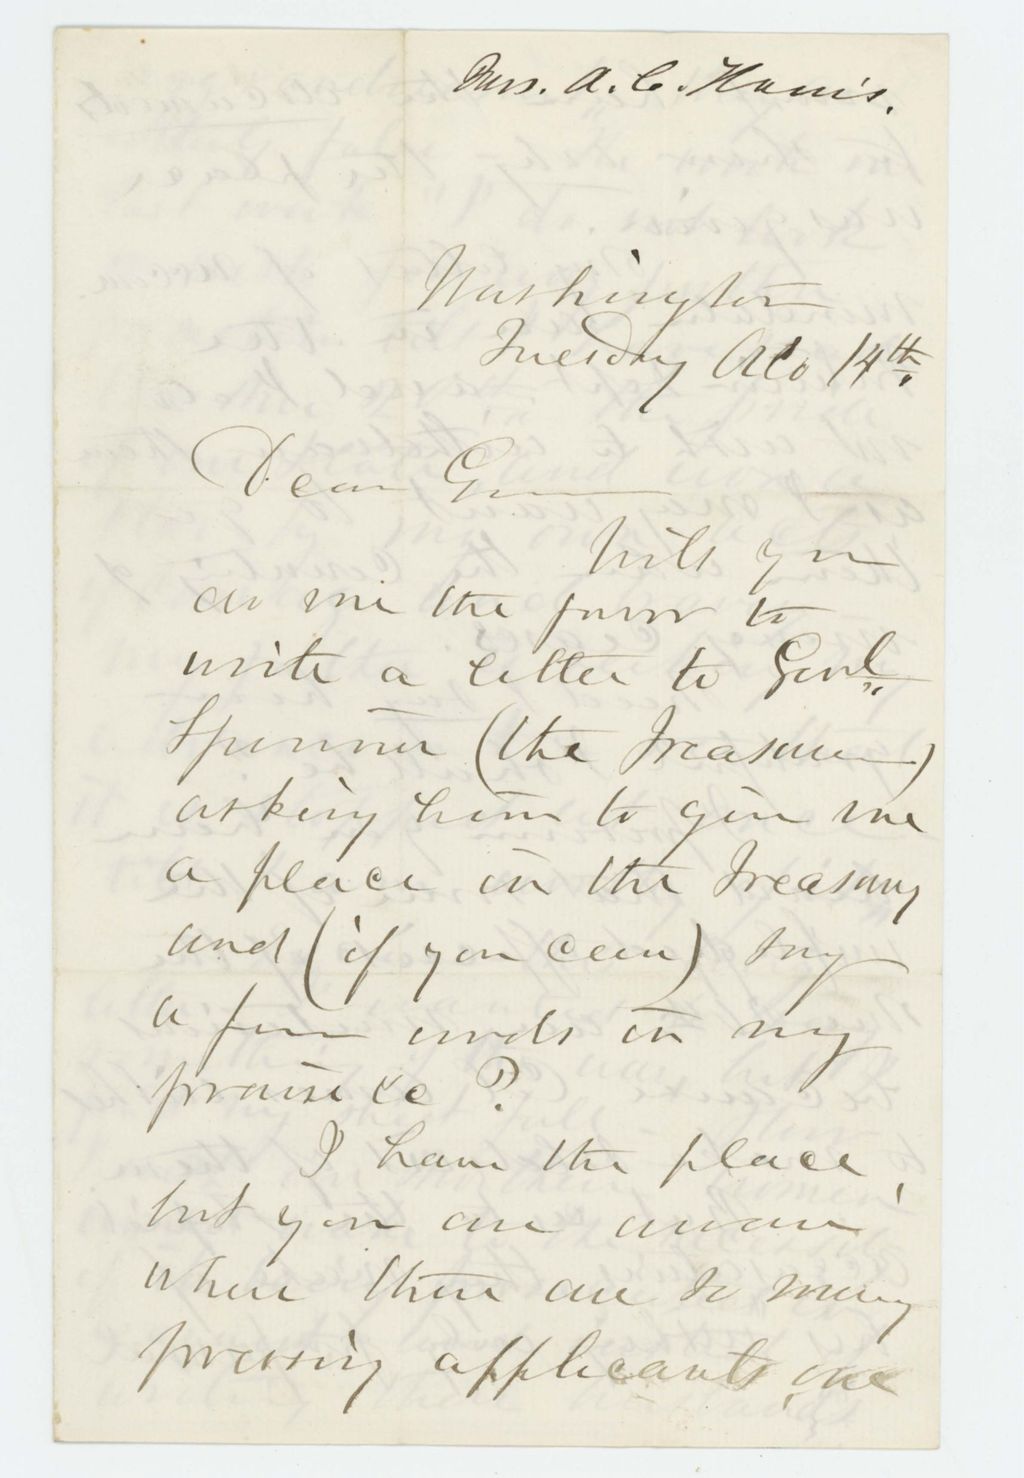 Mrs. A. C. Harris.
Washington
Tuesday 14th
Dear
Will you
do me the favor to
write a letter to Genl
Spinner (the Treasurer)
asking him to give me
a place in the Treasury
and (if you can) say
a few words in my
praise &c ?
I have the place,
but you are aware
where there are so many
pressing applicants, one